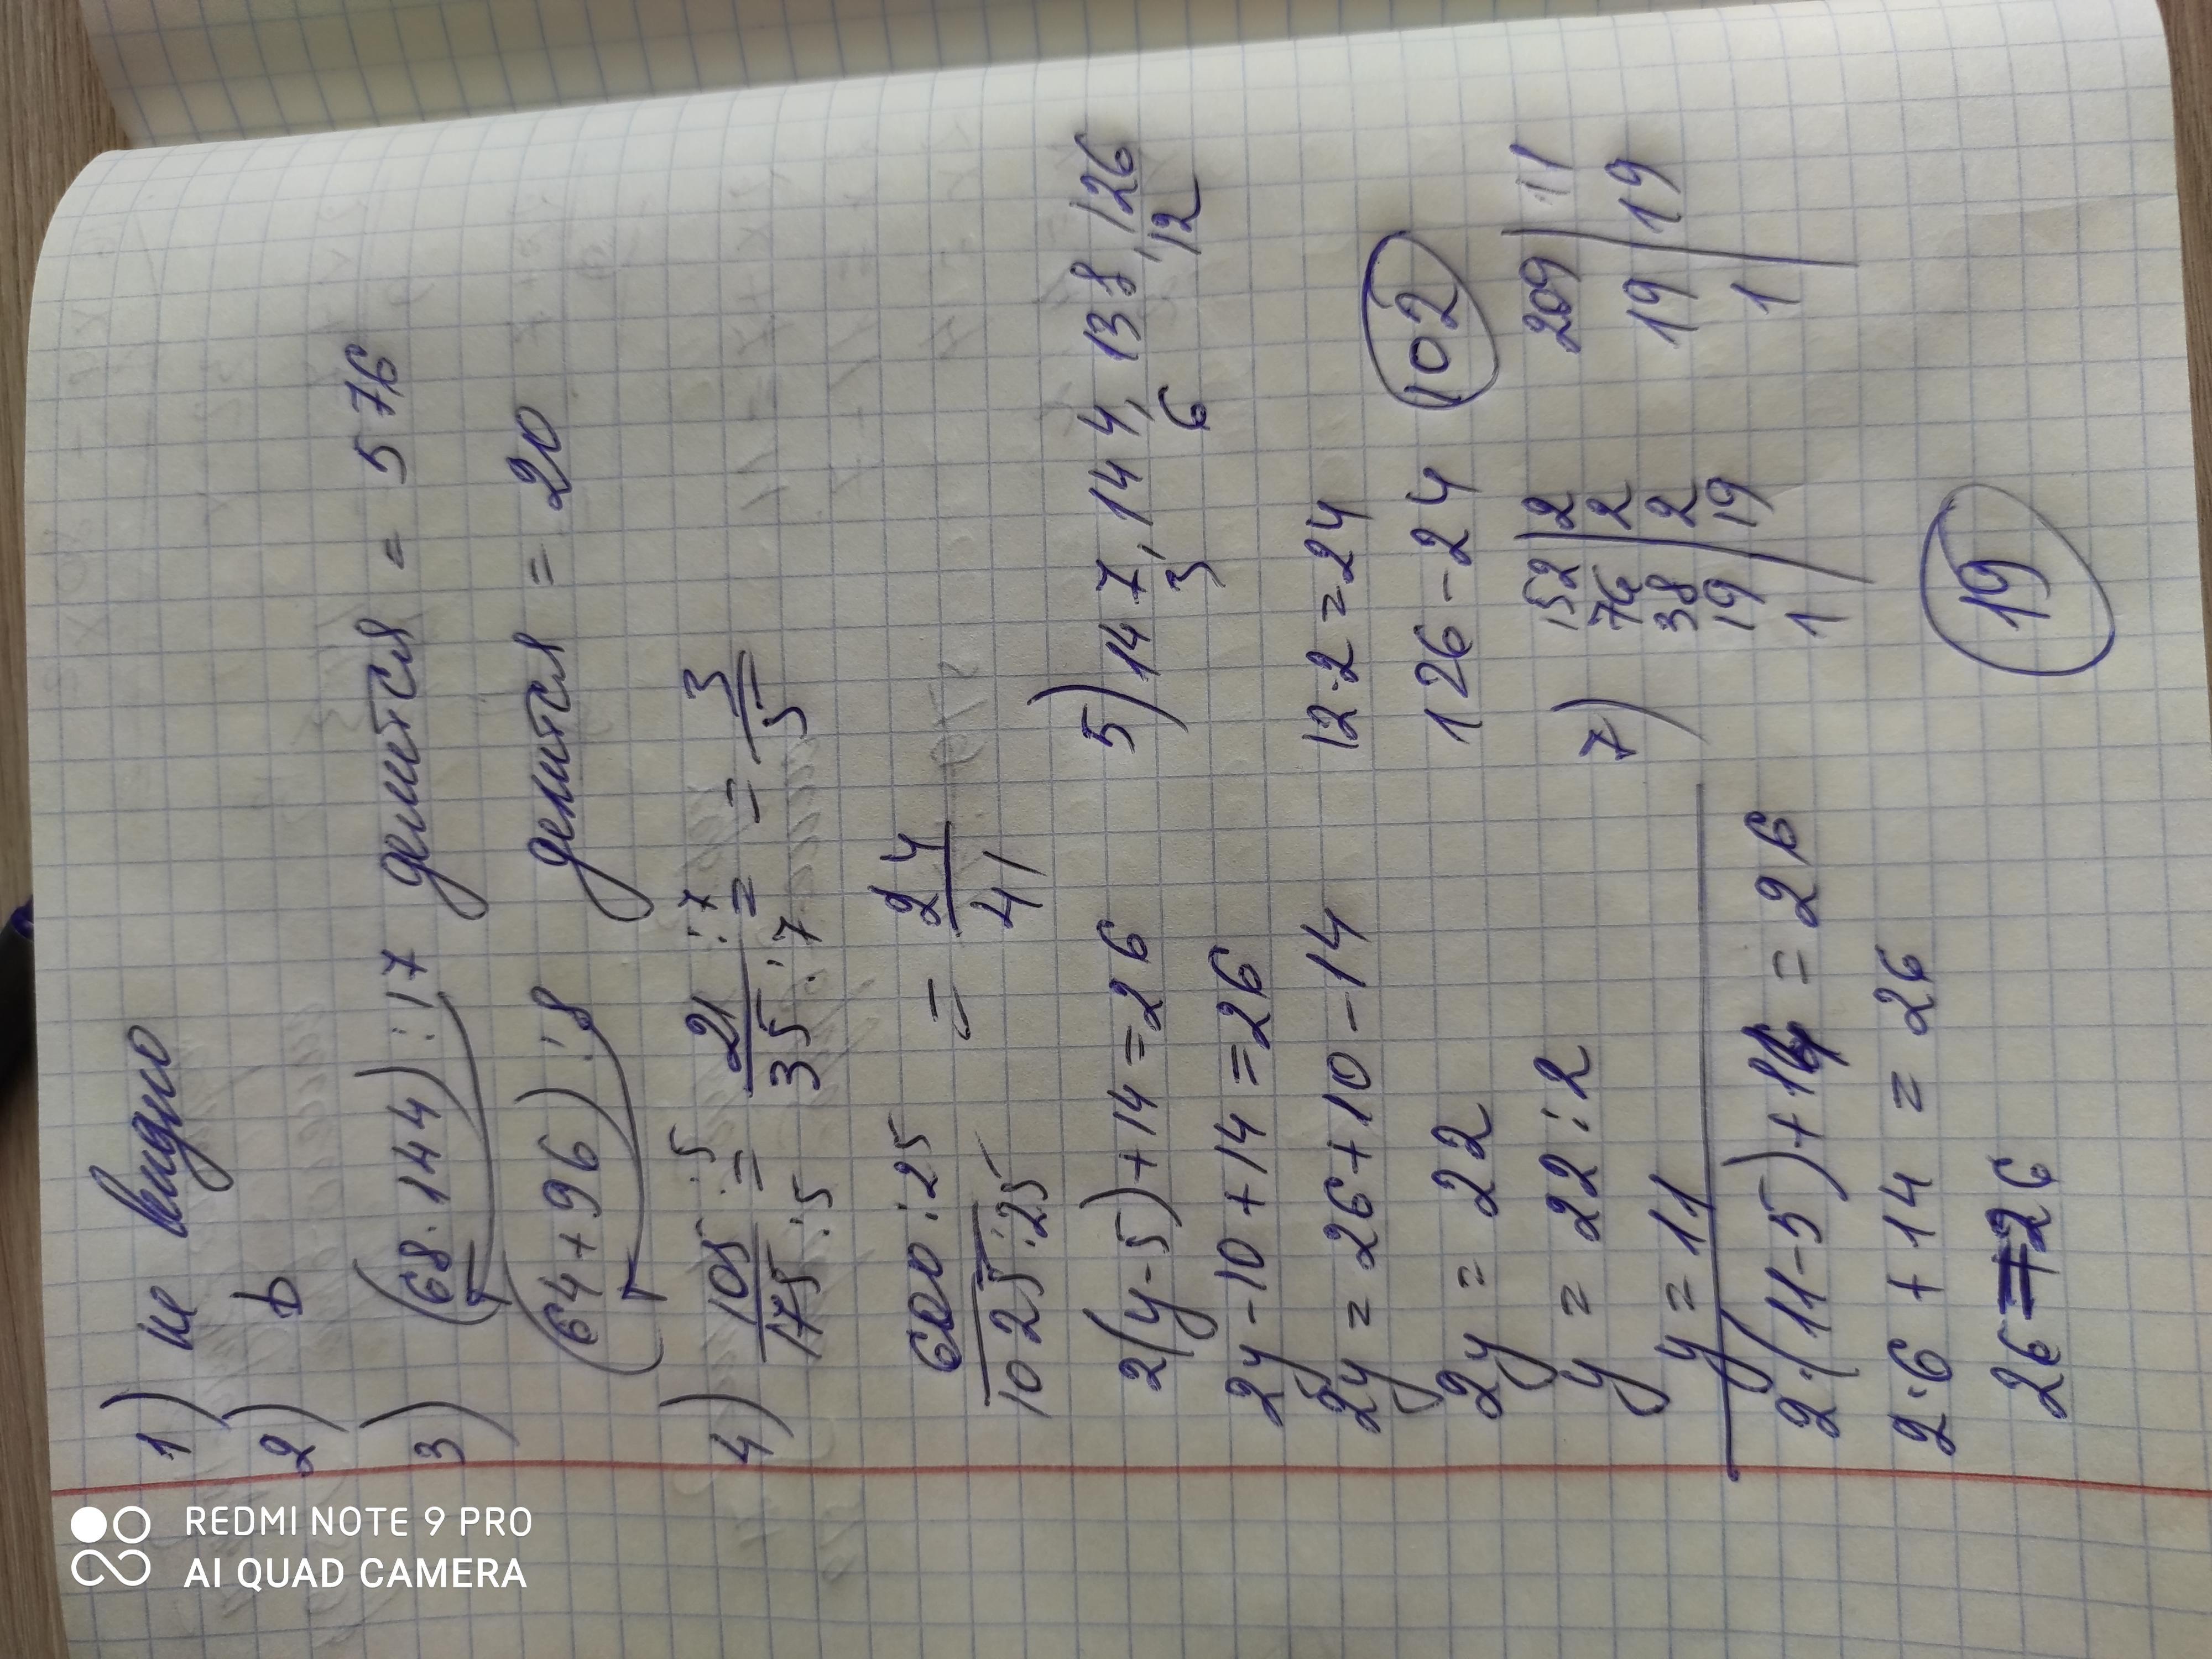 1) не видно
2) b
3) (68·144):17 делится = 576
(64+96):8 делится = 20
4) 105:5/175:5 = 21:7/35:7 = = 3/5
600:25/1025:25 = 24/41
2(y-5)+14=26
2y-10+14=26
2y=26+10-14
2y=22
y=22:2
y=11
2·(11-5)+14=26
2·6+14=26
26=26
5) 147, 144, 138, 126
3 6 12
12·2=24
126-24 102
7) 152|2 209|11
76|2 19|19
38|2 1
19|19
1
19
REDMI NOTE 9 PRO
AI QUAD CAMERA